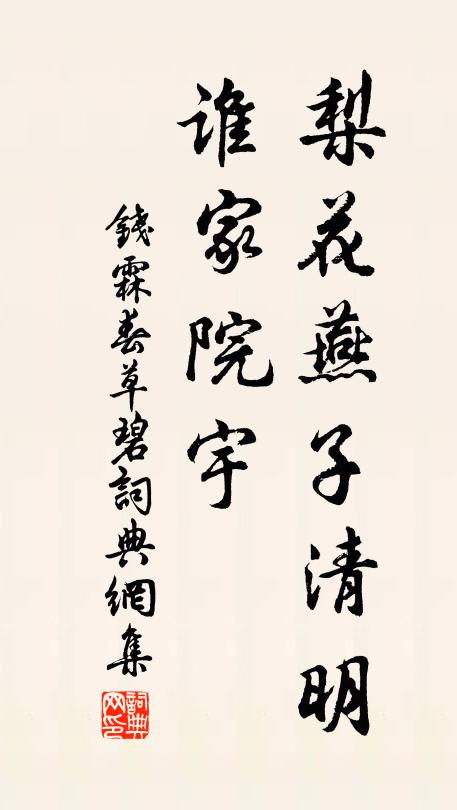 梨花燕子清明
谁家院宇
錢霖春草碧詞典網集
詞典网印